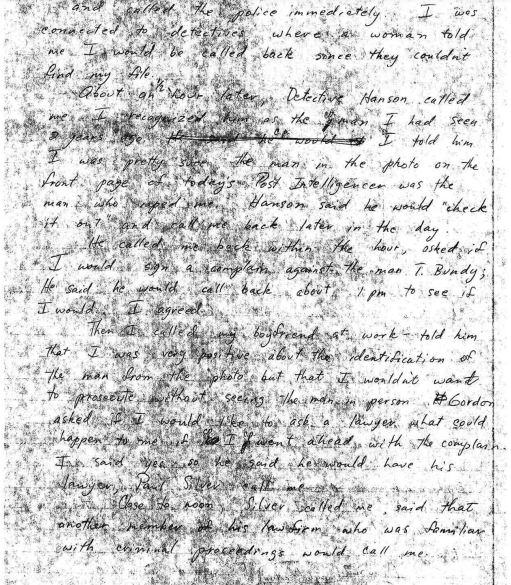 and called the police immediately. I was
connected to detectives where a woman told
me I would be called back since they couldn't
find my file.
About an 1/2 hour later, Detective Hanson called
me. I recognized him as the man I had seen
years ago. I told him
I was pretty sure the man in the photo on the
front page of today's Post Intelligencer was the
man who raped me. Hanson said he would "check
it out and call me back later in the day
He called me back within the hour, asked if
I would sign a complain against the man T. Bundy;
He said he would call back about 1 pm to see if
I would. I agreed.
Then I called my boyfriend at work - told him
that I was very positive about the identification of
the man from the photo but that I wouldn't want
to prosecute without seeing the man in person. Gordon
asked if I would like to ask a lawyer what could
happen to me if I went ahead with the complain.
I said yes so he said he would have his
lawyer, Paul Silver call me.
Close to noon, Silver called me, said that
another member of his law firm who was familiar
with criminal proceedings would call me.